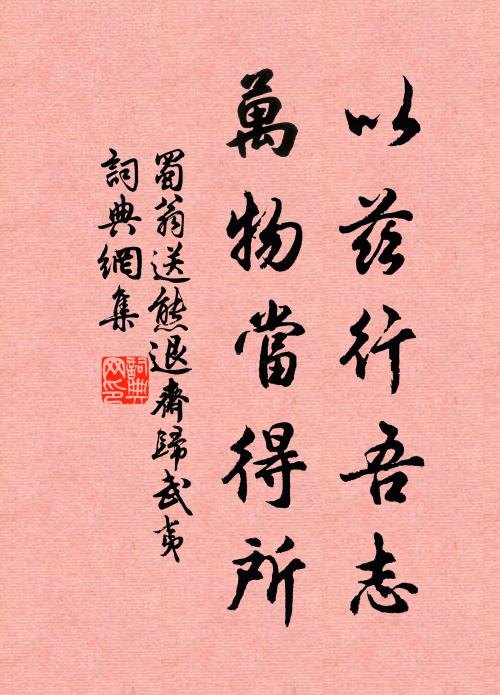 以茲行吾志
萬物當得所
蜀翁送熊退齋歸武夷
詞典網集
詞典网印